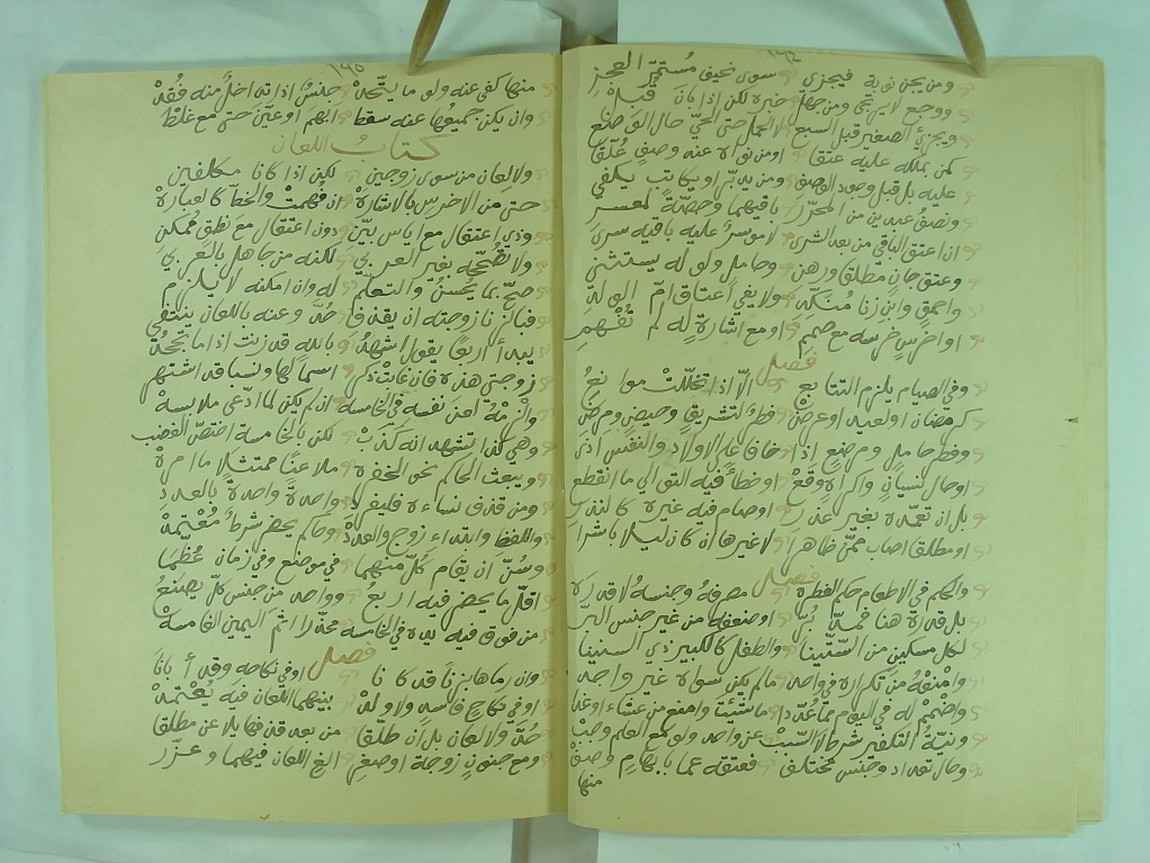 ١٩٤
ومن يجن نوبة فيجزي سوى نحيف مستمر العجز
ووجع لا يرتجى ومن جهل خبره لكن إذا بان قبل
ويجزئ الصغير قبل السبع لا الحمل حتى الحي حال الوضع
كمن بملكه عليه عتقا او من نواه عنه وصف علقا
عليه بل قبل وجود الوصف ومن يدبر او يكاتب يكفي
ونصف عبدين من المحرر باقيهما وحصة لمعسر
ان اعتق الباقي من بعد الشرى لا موسر عليه باقيه سرى
وعتق جان مطلقا ورهن وحامل ولو له يستثني
واحمق وابن زنا ولا يفي اعتاق ام الولد
او اخرس خرسه مع صمم او مع اشارة له لم تفهم
فصل
وفي الصيام يلزم التتابع الا اذا تخللت موانع
كرمضان اولعيد اوعرض فطر لتشريق وحيض ومرض
وفطر حامل ومرضع اذا خافا على الاولاد والنفس اذى
اوحال نسيان واكراه وقع اوخطأ فيه التوالي ما انقطع
بل ان تعمده بغير عذر اوصام فيه غيره كالنذر
او مطلقا اصاب ممن ظاهرا لا غيرها ان كان ليلا باشرا
فصل
والحكم في الاطعام حكم الفطره مصرفه وجنسه لا قدره
بل قدره هنا فمد بر اوضعفه من غير جنس البر
لكل مسكين من الستينا والطفل كالكبير ذي السنينا
وامنعه من تكراره في واحد مالم يكن سواه غير واحد
له في اليوم مما عددا ما شئت وامنع من عشاء اوغدا
ونية التكفير شرط لا السبب عن واحد ولو مع العلم وجب
وحال تعداد وجنس مختلف فعتقه عما بابهام وصف
منها
١٩٥
منها كفى عنه ولو ما يتحد جنس اذا تداخل منه فقد
وان يكن جميعها عنه سقط ابهم اوعين حتى مع غلط
كتاب اللعان
ولا لعان من سوى زوجين لكن اذا كانا مكلفين
حتى من الاخرس بالاشاره ان فهمت والخط كالعباره
وذي اعتقال مع اياس بين دون اعتقال مع نطق ممكن
ولا تصححه بغير العربي لكنه من جاهل بالعربي
صح بما يحسن والتعلم له وان امكنه لا يلزم
فبالزنا زوجته ان يقذف حد وعنه باللعان ينتفي
يبدأ اربعا يقول اشهد بالله قد زنت اذا ما تجحد
زوجتي هذه فان غابت ذكر اسما لها ونسبا قد اشتهر
والزمه لعن نفسه في الخامسه ان لم يكن لما ادعى ملابسه
وهي كذا تشهد انه كذب لكن بالخامسة اختص الغضب
ويبعث الحاكم نحو المخدره ملاعنا ممتثلا ما امره
ومن قذف نساءه فليفرد واحدة واحدة بالعدد
واللفظ وابتداء زوج والعدد وحاكم يحضر شرط معتمد
وسن ان يقام كل منهما في موضع وفي زمان عظما
اقل ما يحضر فيه اربع وواحد من جنس كل يصنع
من فوق فيه يده في الخامسه محذرا اثم اليمين الغامسه
فصل
وان رماها بزنا قد كانا اوفي نكاحه وقد أبانا
اوفي نكاح فاسد ولا ولد بينهما اللعان فيه يعتمد
حد ولا لعان بل ان طلقا من بعد قذفها يلاعن مطلقا
ومع جنون زوجة اوصغر الغ اللعان فيهما وعزر